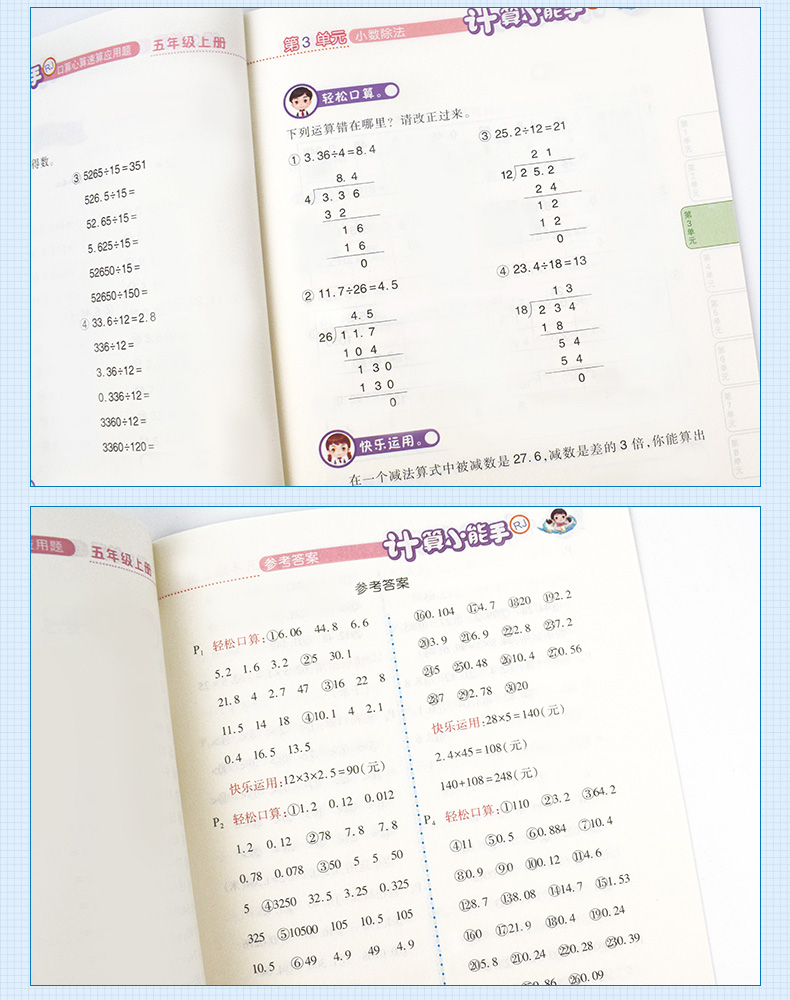 口算心算速算应用题 五年级上册
得数。
③ 5265÷15=351
526.5÷15=
52.65÷15=
5.625÷15=
52650÷15=
52650÷150=
④ 33.6÷12=2.8
336÷12=
3.36÷12=
0.336÷12=
3360÷12=
3360÷120=
第3单元 小数除法 计算小能手
轻松口算。
下列运算错在哪里？请改正过来。
① 3.36÷4=8.4
8.4
4 3.36
32
16
16
0
② 11.7÷26=4.5
4.5
26 11.7
104
130
130
0
③ 25.2÷12=21
21
12 25.2
24
12
12
0
④ 23.4÷18=13
13
18 234
18
54
54
0
快乐运用。
在一个减法算式中被减数是27.6,减数是差的3倍,你能算出
第1单元
第2单元
第3单元
第4单元
第5单元
第6单元
第7单元
第8单元
应用题 五年级上册
参考答案 计算小能手 RJ
参考答案
P1 轻松口算:①6.06 44.8 6.6
5.2 1.6 3.2 ②5 30.1
21.8 4 2.7 47 ③16 22 8
11.5 14 18 ④10.1 4 2.1
0.4 16.5 13.5
快乐运用:12×3×2.5=90(元)
P2 轻松口算:①1.2 0.12 0.012
1.2 0.12 ②78 7.8 7.8
0.78 0.078 ③50 5 5 50
5 ④3250 32.5 3.25 0.325
325 ⑤10500 105 10.5 105
10.5 ⑥49 4.9 49 4.9
⑯0.104 ⑰4.7 ⑱20 ⑲2.2
⑳3.9 ㉑6.9 ㉒2.8 ㉓7.2
㉔5 ㉕0.48 ㉖10.4 ㉗0.56
㉘7 ㉙2.78 ㉚20
快乐运用:28×5=140(元)
2.4×45=108(元)
140+108=248(元)
P4 轻松口算:①110 ②3.2 ③64.2
④11 ⑤0.5 ⑥0.884 ⑦10.4
⑧0.9 ⑨0 ⑩0.12 ⑪4.6
⑫8.7 ⑬8.08 ⑭14.7 ⑮1.53
⑯0 ⑰21.9 ⑱0.4 ⑲0.24
⑳5.8 ㉑0.24 ㉒0.28 ㉓0.39
0.86 ㉖0.09